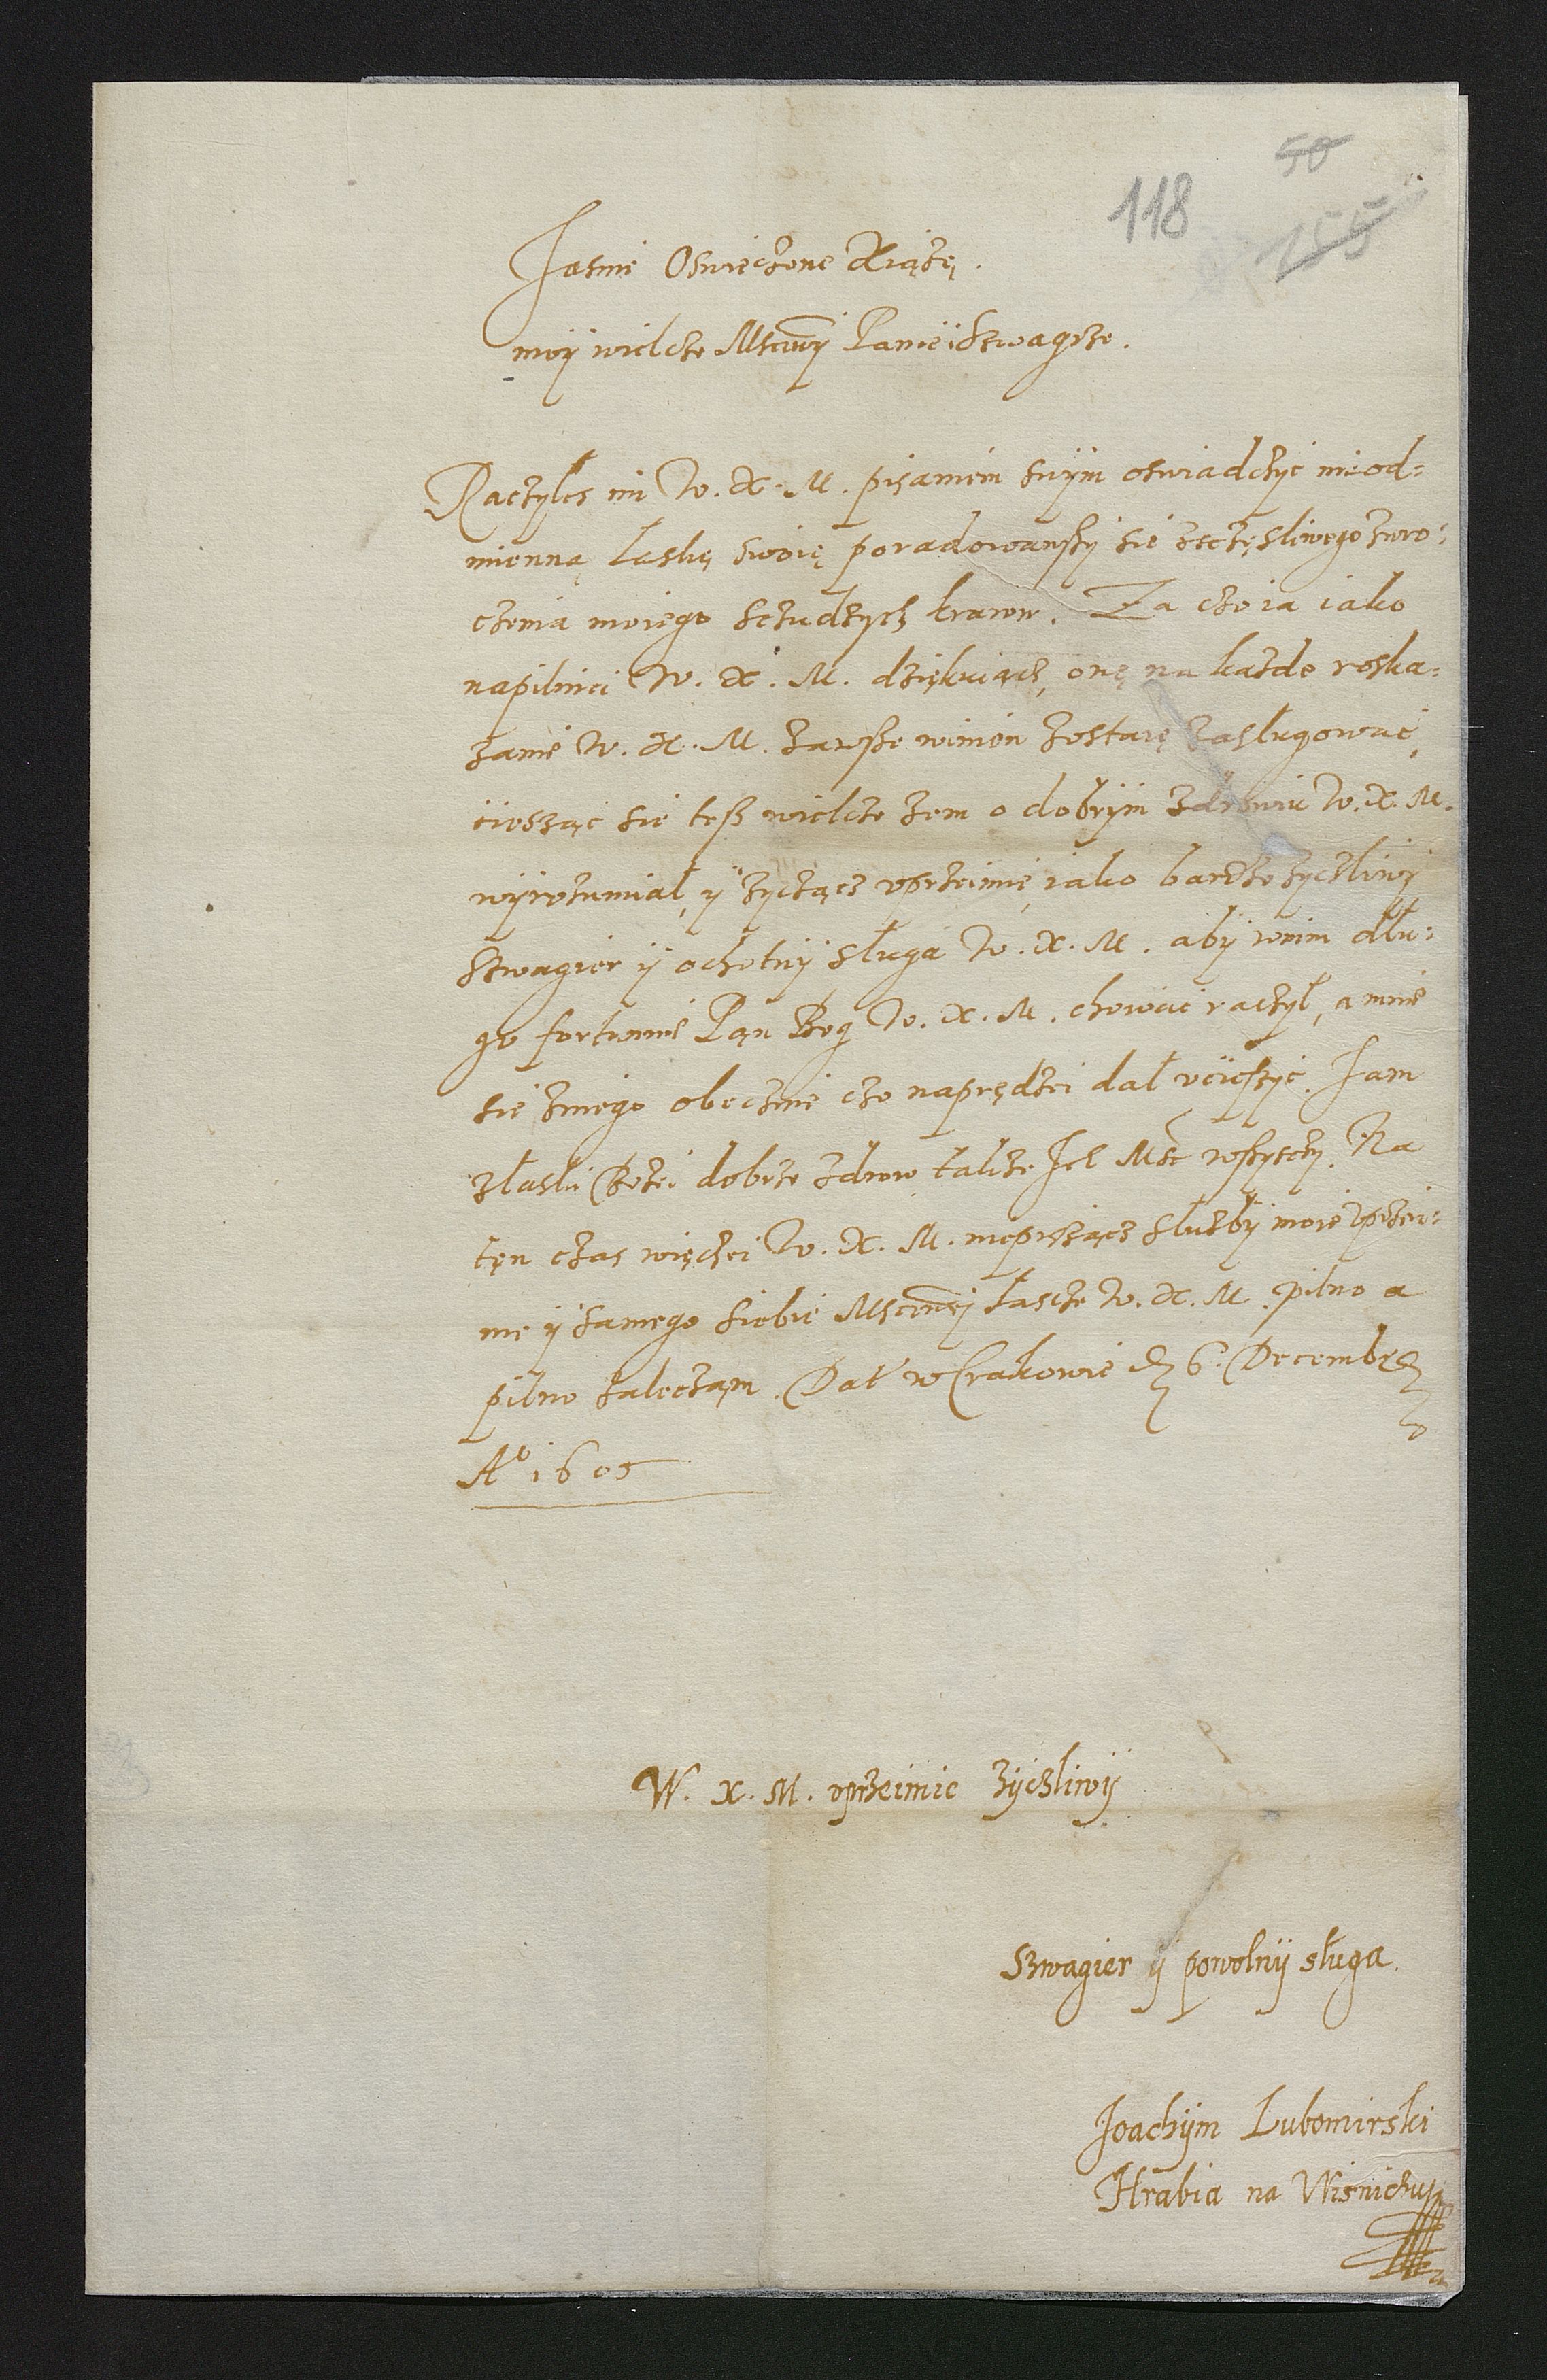 50
118
155
Jasnie Oswieczone Xiążę.
moy wielcze Msciwy Panie i Szwagrze.
Raczyles mi W. X. M. pisaniem swym oswiadczyc nieod=
mienną Laskę swoię poradowawszy sie sczęsliwego zwro=
czenia moiego sczudzych kraiow. Za czo ia iako
napilniei W. X. M. dziękuiącz, onę na kazde roska=
zanie W. X. M. zawsze winien zostaię zasługowac,
ciesząc sie tesz wielcze zem o dobrym zdrowiu W. X. M.
wyrozumiał, y zyczącz uprzeimię, iako bardzo zyczliwy
Szwagier y ochotny sługa W. X. M. aby wnim dłu=
go fortunnie Pąn Bog W. X. M. chowac raczył, a mnie
sie zniego obecznie czo naprędzei dał ucieszyc. Jam
złaski Bozei dobrze zdrow także Ich Msc wszysczy. Na
tęn czas więczei W. X. M. niepiszącz słuzby moie uprzei=
me y samego siebie Msciwey łascze W. X. M. pilno a
pilno zalecząm. Dat w Crakowie D 6. Decembr
Aº 1605
W. X. M. uprzeimie zyczliwy
Szwagier y powolny sługa.
Joachym Lubomirski
Hrabia na Wisniczu